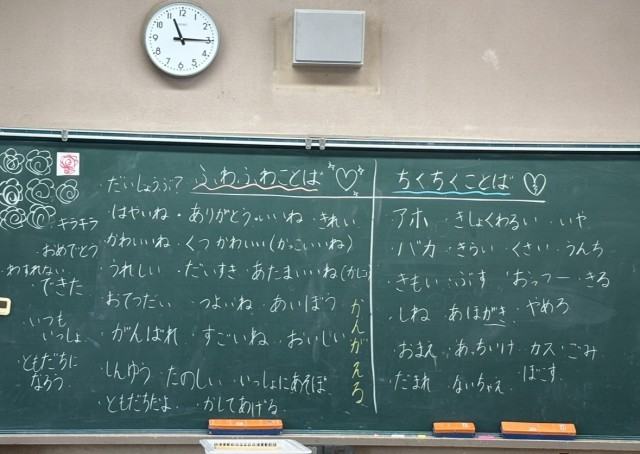 ふわふわことば
だいじょうぶ?
はやいね・ありがとう・いいね きれい
かわいいね・くつかわいい(かっこいいね)
うれしい・だいすき・あたまいいね
おてつだい・つよいね・あいぼう
がんばれ・すごいね・おいしい
しんゆう・たのしい・いっしょにあそぼ
ともだちだよ・かしてあげる
キラキラ
おめでとう
わすれない
できた
いつも
いっしょ
ともだちに
なろう
かんがえる
ちくちくことば
アホ・きしょくわるい・いや
バカ・きらい・くさい・うんち
きもい・ぶす・おっつー・きる
しね・あほがき・やめろ
おまえ・あっちいけ・カス・ごみ
だまれ・ないちゃえ・ぼこす
12
1
2
3
4
5
6
7
8
9
10
11